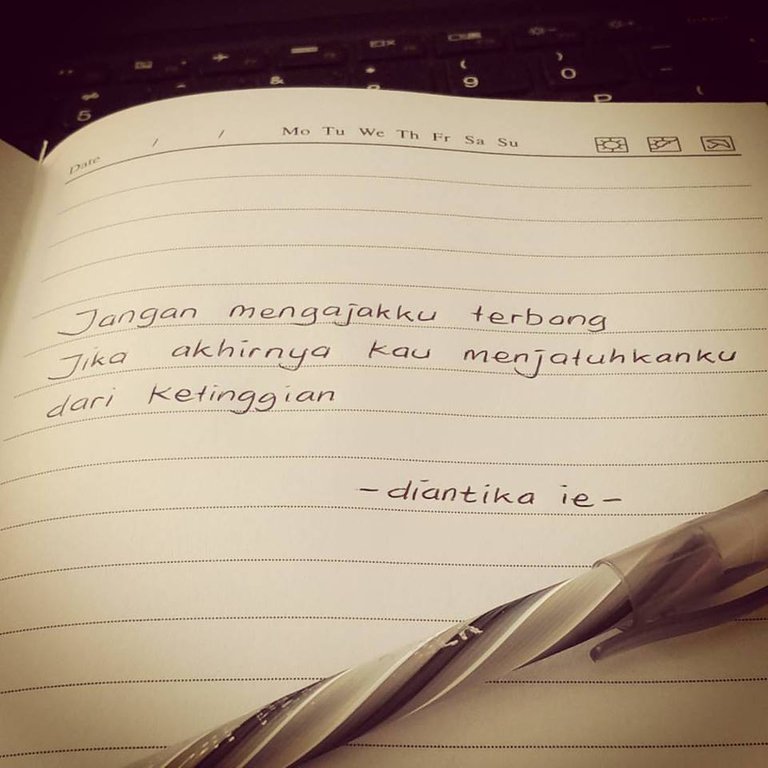 5 & * ( 9 ) 0 P
Date / / Mo Tu We Th Fr Sa Su
Jangan mengajakku terbang
Jika akhirnya kau menjatuhkanku
dari ketinggian
-diantika ie-